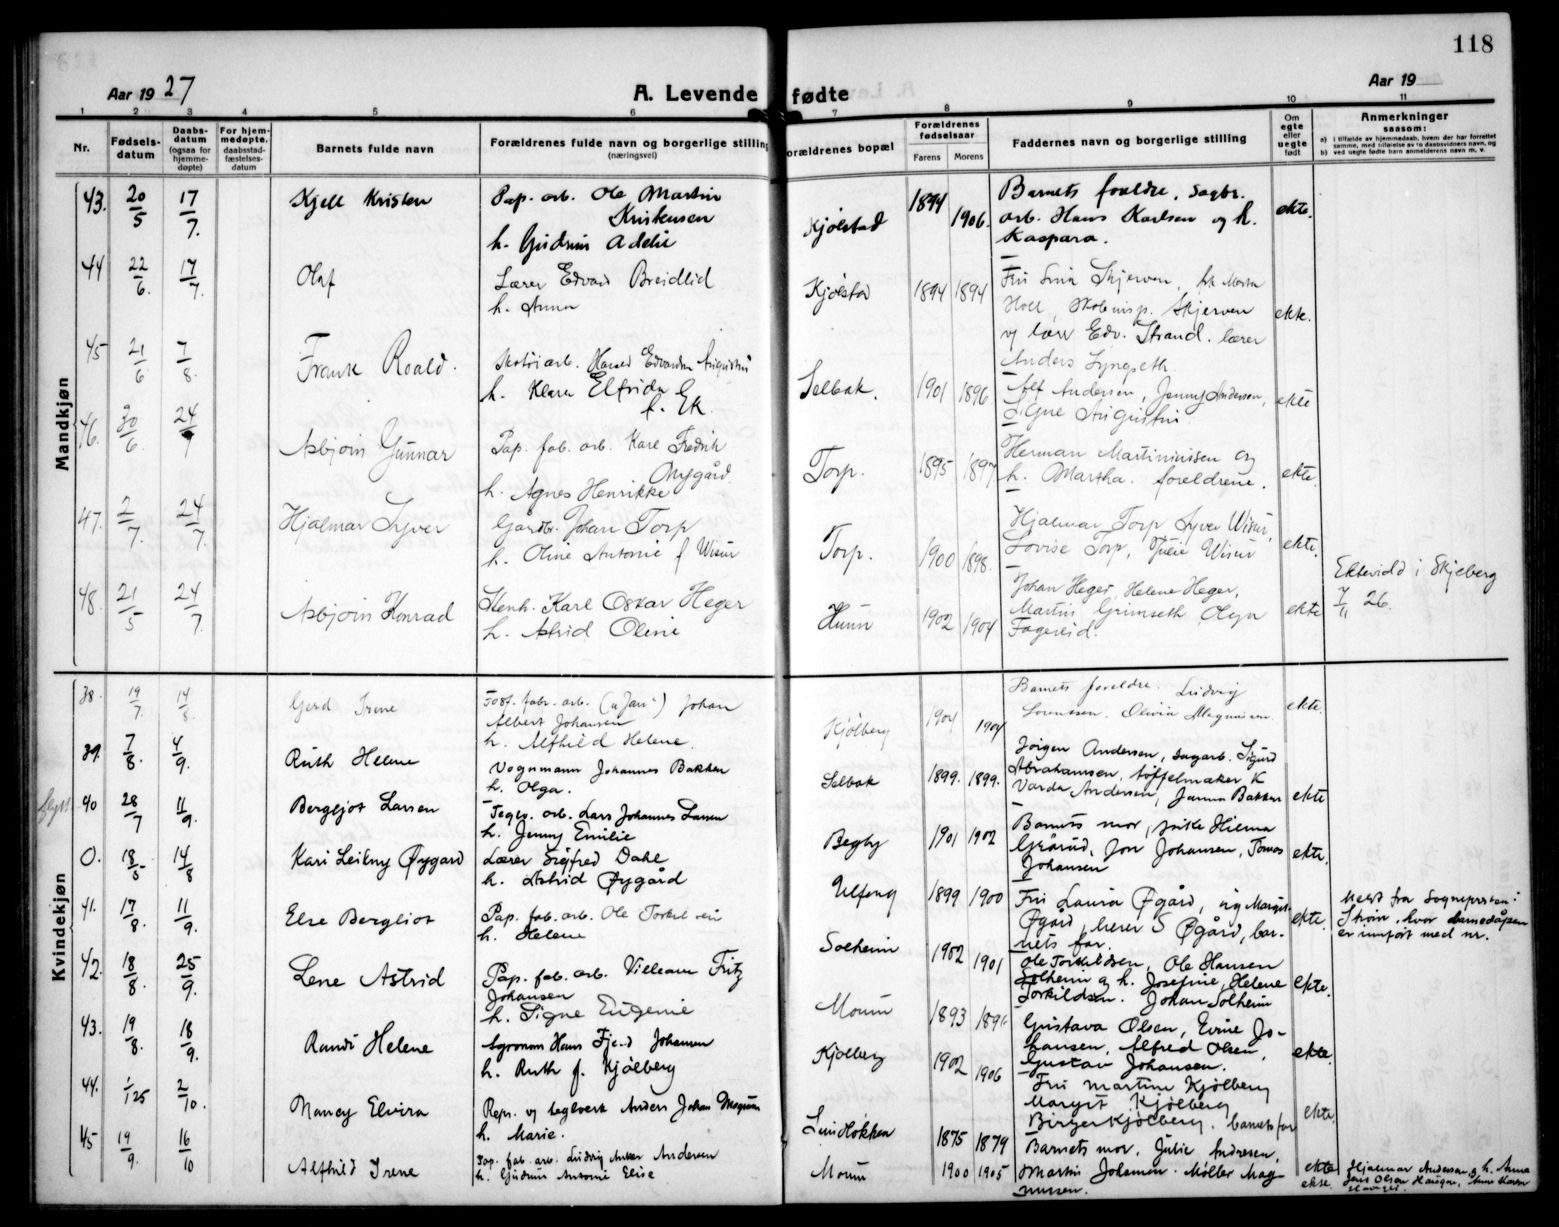 118
Aar 1927
A. Levende fødte
Aar 19
1 2 3 4 5 6 7 8 9 10 11
Nr.
Fødsels-
datum
Daabs-
datum
(ogsaa for
hjemme-
døpte)
For hjem-
medøpte,
daabsstad-
fæstelses-
datum
Barnets fulde navn
Forældrenes fulde navn og borgerlige stilling
(næringsvei)
Forældrenes bopæl
Forældrenes
fødselsaar
Farens Morens
Faddernes navn og borgerlige stilling
Om
egte
eller
uegte
født
Anmerkninger
saasom:
a) i tilfælde av hjemmedaab, hvem der har forrettet
samme, med tilføielse av to daabsvidners navn, og
b) ved uegte født barn anmelderens navn m. v.
Mandkjøn
43. 20/5 17/7. Kjell Kristen Pap. arb. Ole Martin
Kristensen
h. Gudrun Adele
Kjølstad 1894 1906. Barnets foreldre, Sagbr.
arb. Hans Karlsen og h.
Kaspara.
ekte.
44 22/6. 17/7. Olaf Lærer Edvard Breidlid
h. Anna
Kjølstad 1894 1894 Fru Skjerven, frk
Holl, Skoleinsp. Skjerven
og lærer Edv. Strand. lærer
Anders Lyngseth.
ekte.
45 21/6 7/8. Frank Roald. Skotøiarb. Harald Edvardin Augustini
h. Klara Elfrida
f. Ek.
Selbak. 1901 1896 Alf Andersen, Jenny Andersen,
Signe Augustini.
ekte
46. 30/6. 24/7 Asbjørn Gunnar Pap. fab. arb. Karl Fredrik
Nygård.
h. Agnes Henrikke
Torp. 1895 1897 Herman Martiniussen og
h. Martha. foreldrene.
ekte.
47. 2/7. 24/7. Hjalmar Syver Gårdbr. Johan Torp
h. Oline Antonie f Wisur
Torp. 1900 1898. Hjalmar Torp Syver Wisur,
Lovise Torp, Julie Wisur
ekte.
48. 21/5 24/7. Asbjørn Konrad Stenh. Karl Oskar Heger
h. Astrid Oline
Hunn 1902 1904 Johan Heger, Helene Heger,
Martin Grimseth Olga
Fagereid.
ekte
Ektevidd i Skjeberg
7/11 26.
Kvindekjøn
38. 19/7. 14/8. Gerd Irene fabr. arb. Johan
Albert Johansen
h. Alfhild Helene.
Kjølberg 1904 1904 Barnets foreldre. Ludvig
Lorentsen. Olivia Magnussen.
ekte.
39. 7/8. 4/9. Ruth Helene Vognmann Johannes Bakken
h. Olga.
Selbak 1899. 1899. Jørgen Andersen, sagarb. Sigurd
Abrahamsen, tøffelmaker K
Varda Andersen, Janna Bakken
ekte
40 28/7 11/9. Bergljot Larsen Teglv. arb. Lars Johannes Larsen
h. Jenny Emilie
Begby 1901 1902 Barnets mor, frøke Hilma
Grårud, Jon Johansen, Tomas
Johansen
ekte.
0. 18/5 14/8 Kari Leikny Øygard Lærer Sigfred Dahl
h. Astrid Øygård
Ulfeng 1899 1900 Fru Laura Øgård, og Margit
Øgård, lærer S Øgård, bar-
nets far.
ekte.
Meldt fra Sognepresten i
Strøm, hvor barnedåpen
er innført med nr.
41. 17/8. 11/9. Else Bergliot Pap. fab. arb. Ole Torkildsen
h. Helene
Solheim 1902 1901 Ole Torkildsen, Ole Hansen
Solheim og h. Josefine, Helene
Torkildsen. Johan Solheim
ekte.
42. 18/8. 25/9. Lene Astrid Pap. fab. arb. Villeam Fritz
Johansen
h. Signe Eugenie
Moum 1893 1896 Gustava Olsen, Evine Jo-
hansen, Alfred Olsen,
Gustav Johansen.
ekte
43. 19/8. 18/9. Randi Helene Agronom Hans Fjeld Johansen
h. Ruth f. Kjølberg
Kjølberg 1902 1906 Fru Martine Kjølberg
Margit Kjølberg
Birger Kjølberg. barnets far
ekte.
44. 1/1 25 2/10. Nancy Elvira Rep. v teglverk Anders Johan Magnus
h. Marie.
Lundløkken 1875 1879 Barnets mor, Julie Andresen,
Martin Johansen. Møller Mag-
nussen.
ekte
45 19/9. 16/10 Alfhild Irene Pap. fab. arb. Ludvig Anker Andersen
h. Gudrun Antonie Elise
Moum 1900 1905 ekte.
Hjalmar Andersen og h. Anna
Jens Olsen Haugen, Anne Karen
Haugen.